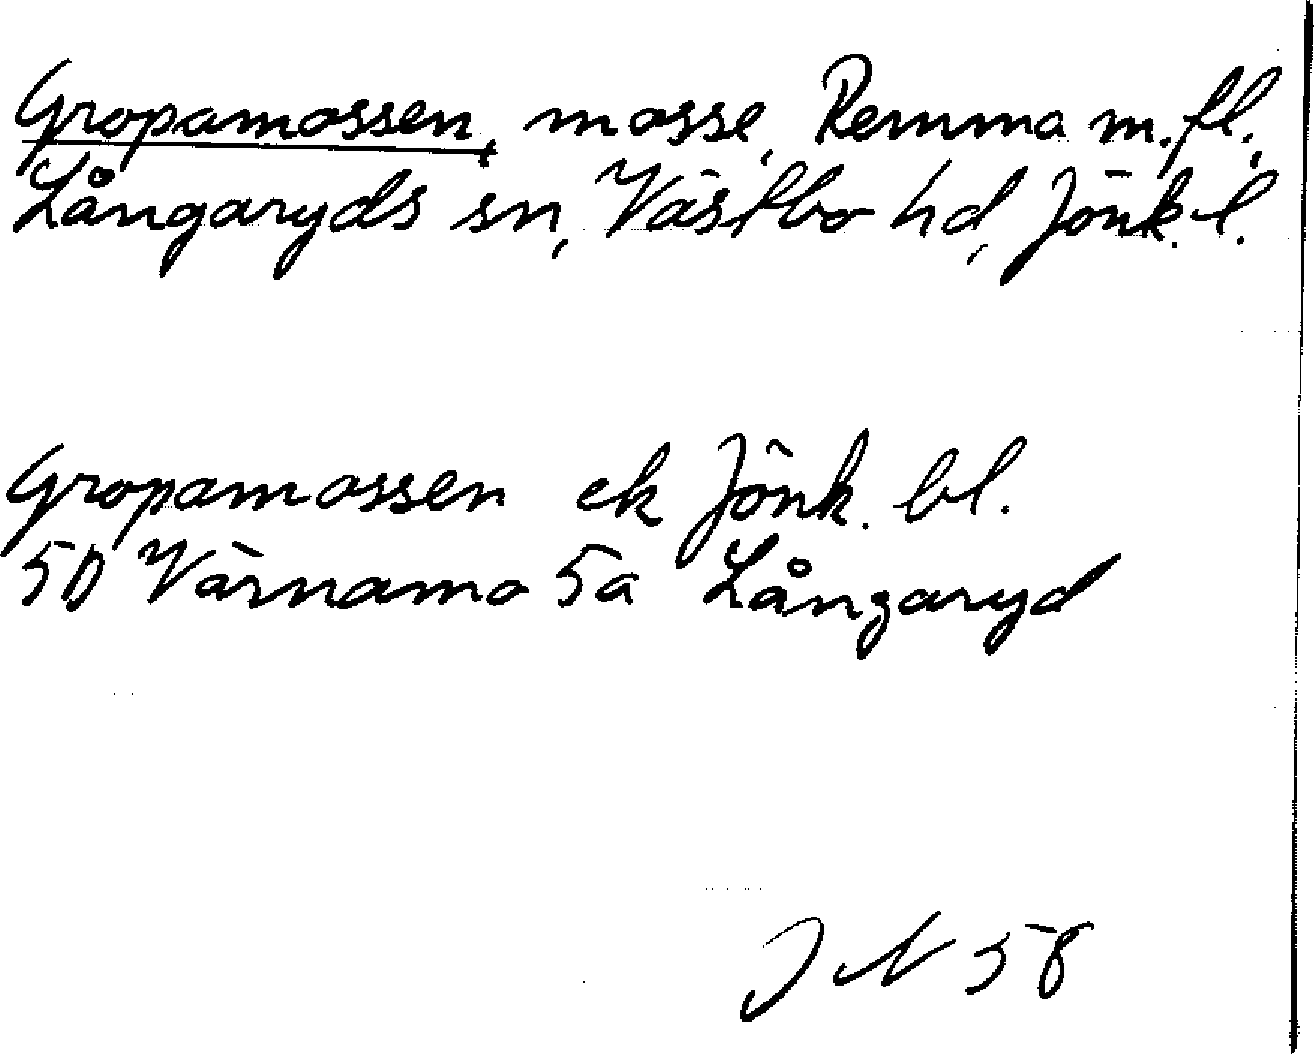 Gropamossen, mosse, Remma m.fl.,
Långaryds sn, Västbo hd, Jönk. l.
Gropamossen ek Jönk. bl.
5D Värnamo 5a Långaryd
JN 58